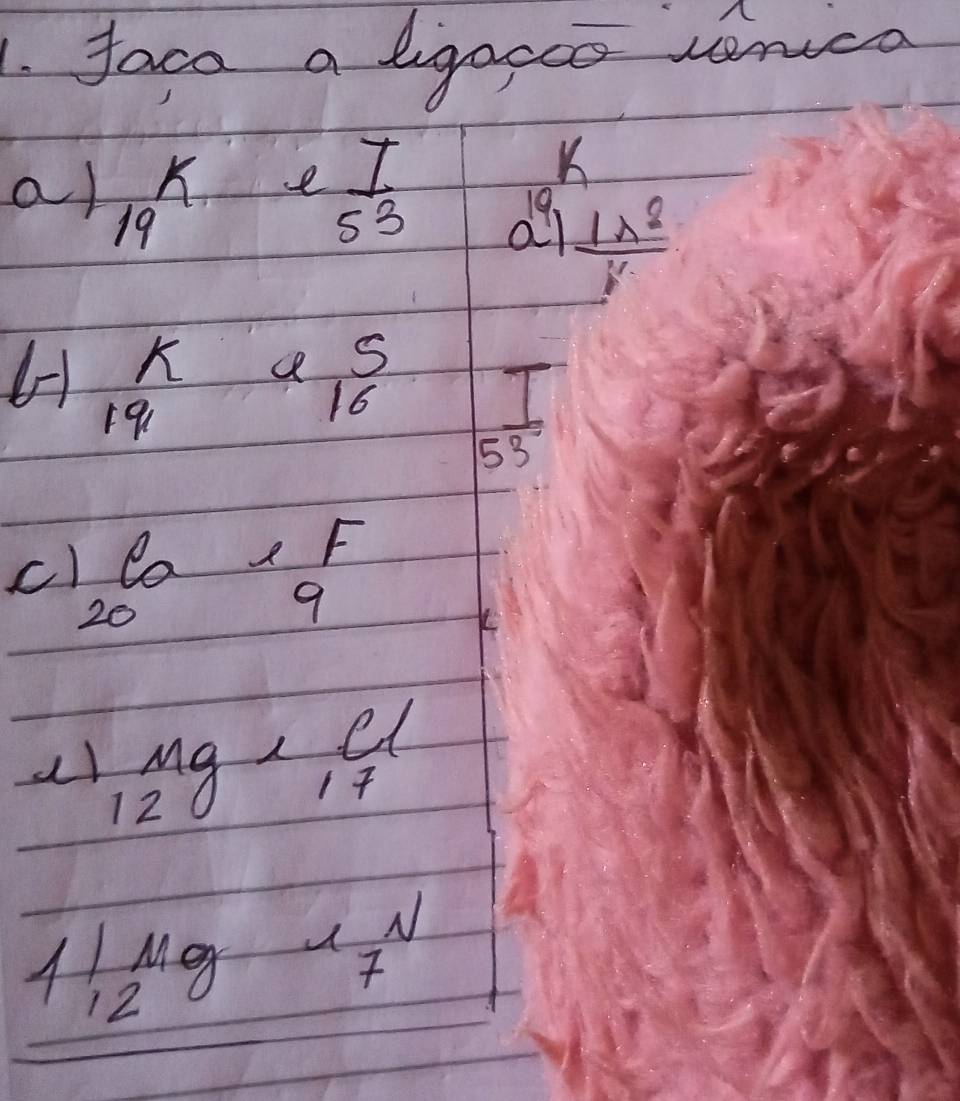 1. Faça a ligação iônica
a) K e I
19 53
b) K e S
19 16
c) Ca e F
20 9
e) Mg e Cl
12 17
f) Mg e N
12 7
K
19
a) 1s²
K
I
53